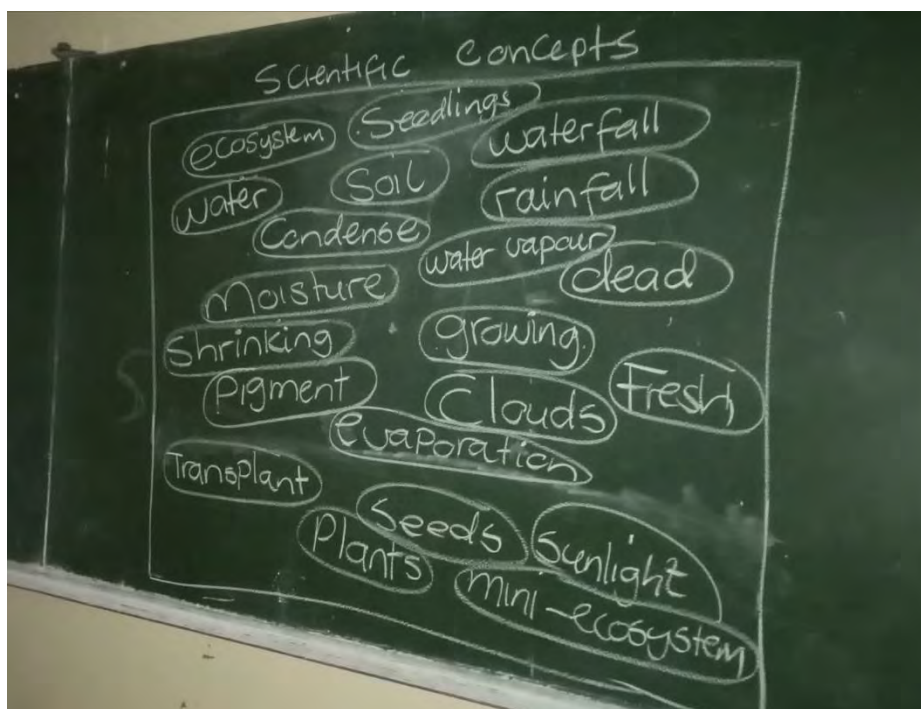 Scientific Concepts
ecosystem Seedlings waterfall
water Soil rainfall
Condense water vapour dead
Moisture
Shrinking growing Fresh
Pigment Clouds
evaporation
Transplant
Seeds Sunlight
Plants mini-ecosystem